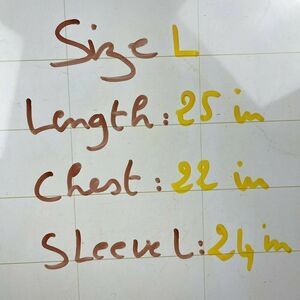 Size L
Length: 25 in
Chest: 22 in
Sleeve L: 24 in